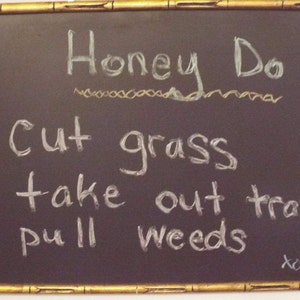 Honey Do
cut grass
take out tra
pull weeds
xo